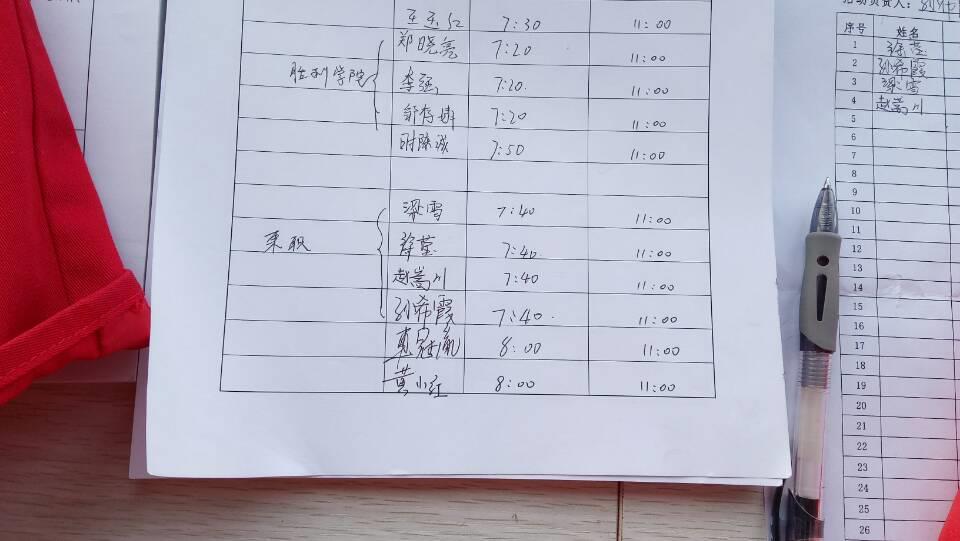 7:30 11:00
郑晓亮 7:20 11:00
胜利学院 李强 7:20 11:00
7:20 11:00
7:50 11:00
梁雪 7:40 11:00
东职 徐莹 7:40 11:00
赵嵩川 7:40 11:00
孙希霞 7:40 11:00
8:00 11:00
黄小红 8:00 11:00
活动负责人：
序号 姓名
1 徐莹
2 孙希霞
3 梁雪
4 赵嵩川
5
6
7
8
9
10
11
12
13
14
15
16
17
18
19
20
21
22
23
24
25
26